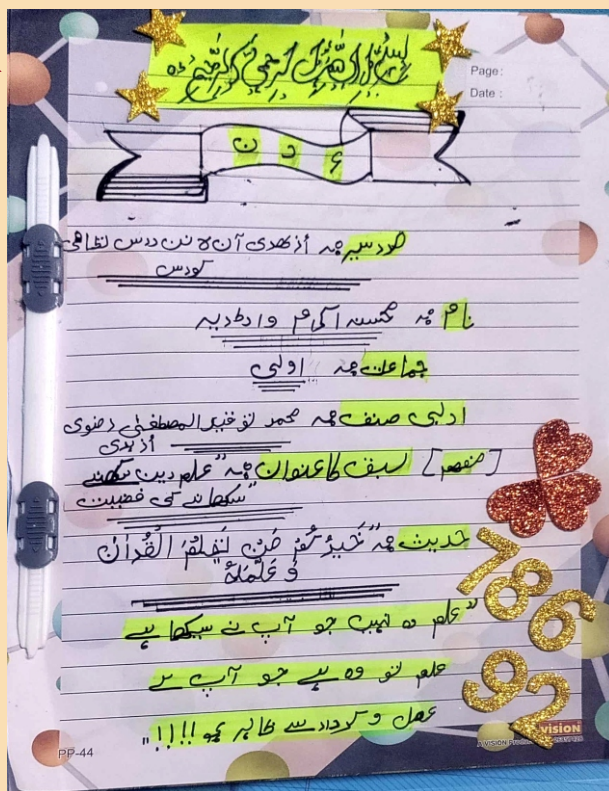 بسم اللہ الرحمن الرحیم
Page:
Date :
ء د ن
مدرسہ :۔ ازھری آن لائن درس نظامی
کورس
نام :۔
جماعت :۔ اولی
محمد توقیر المصطفیٰ رضوی
ازہری
سبق کا عنوان :۔ "علم دین سیکھنے
سکھانے کی فضیلت"
حدیث :۔ "خَيْرُكُمْ مَنْ تَعَلَّمَ الْقُرْآنَ
وَعَلَّمَهُ
"علم وہ نہیں جو آپ نے سیکھا ہے
علم تو وہ ہے جو آپ کے
عمل و کردار سے ظاہر ہو !!!!"
786
92
PP-44
VISION